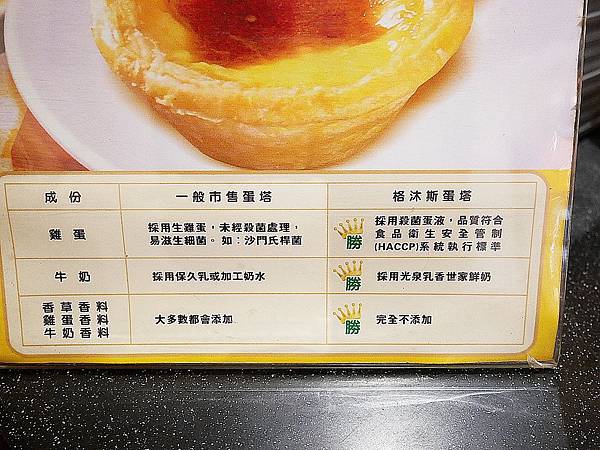 成份 一般市售蛋塔 格沐斯蛋塔
雞蛋 採用生雞蛋，未經殺菌處理，
易滋生細菌。如：沙門氏桿菌
勝 採用殺菌蛋液，品質符合
食品衛生安全管制
(HACCP)系統執行標準
牛奶 採用保久乳或加工奶水 勝 採用光泉乳香世家鮮奶
香草香料
雞蛋香料
牛奶香料
大多數都會添加 勝 完全不添加